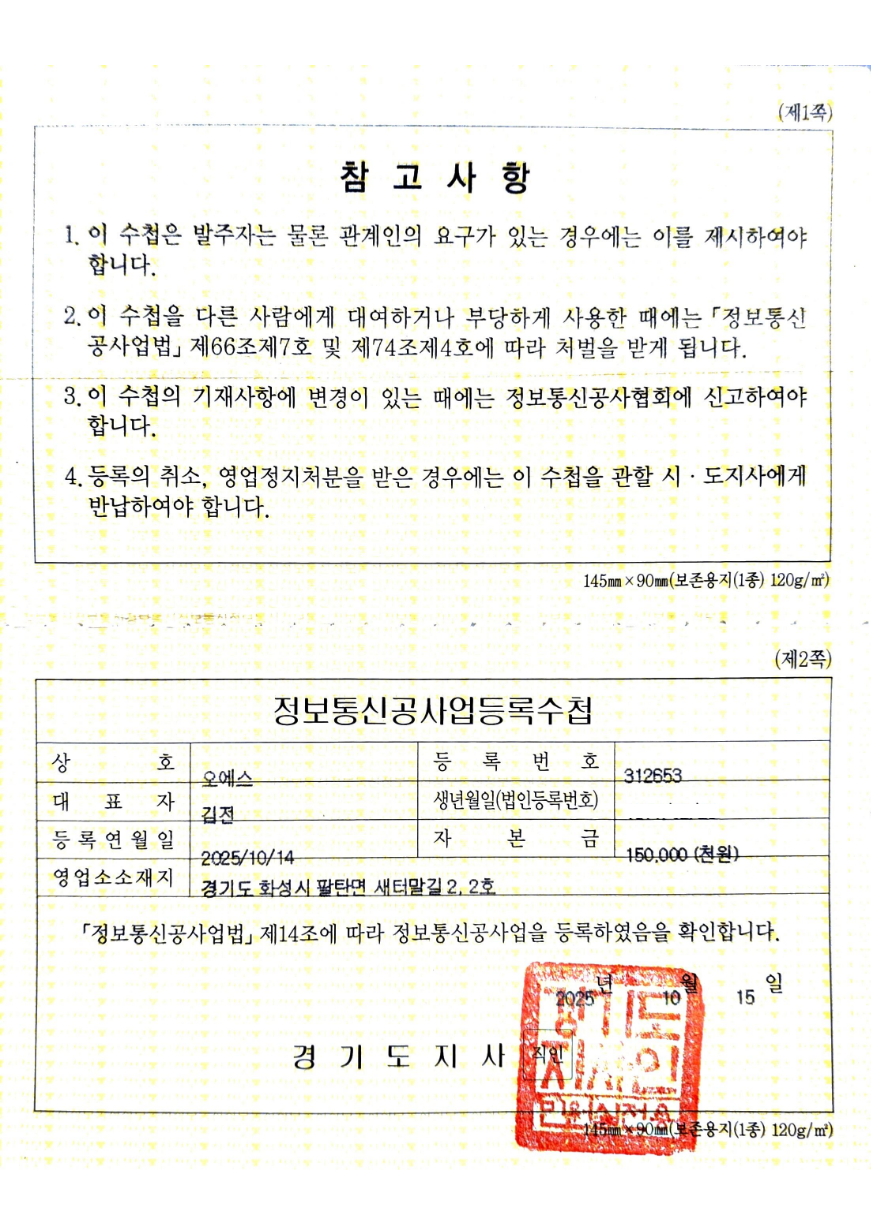 (제1쪽)
참 고 사 항
1. 이 수첩은 발주자는 물론 관계인의 요구가 있는 경우에는 이를 제시하여야
합니다.
2. 이 수첩을 다른 사람에게 대여하거나 부당하게 사용한 때에는 「정보통신
공사업법」 제66조제7호 및 제74조제4호에 따라 처벌을 받게 됩니다.
3. 이 수첩의 기재사항에 변경이 있는 때에는 정보통신공사협회에 신고하여야
합니다.
4. 등록의 취소, 영업정지처분을 받은 경우에는 이 수첩을 관할 시 · 도지사에게
반납하여야 합니다.
145㎜×90㎜(보존용지(1종) 120g/㎡)
(제2쪽)
정보통신공사업등록수첩
상 호 오에스 등 록 번 호 312653
대 표 자 김전 생년월일(법인등록번호)
등록연월일 2025/10/14 자 본 금 150,000 (천원)
영업소소재지 경기도 화성시 팔탄면 새터말길 2, 2호
「정보통신공사업법」 제14조에 따라 정보통신공사업을 등록하였음을 확인합니다.
2025 년 10 월 15 일
경 기 도 지 사 직인
경기도
지사인
민원실전용
145㎜×90㎜(보존용지(1종) 120g/㎡)